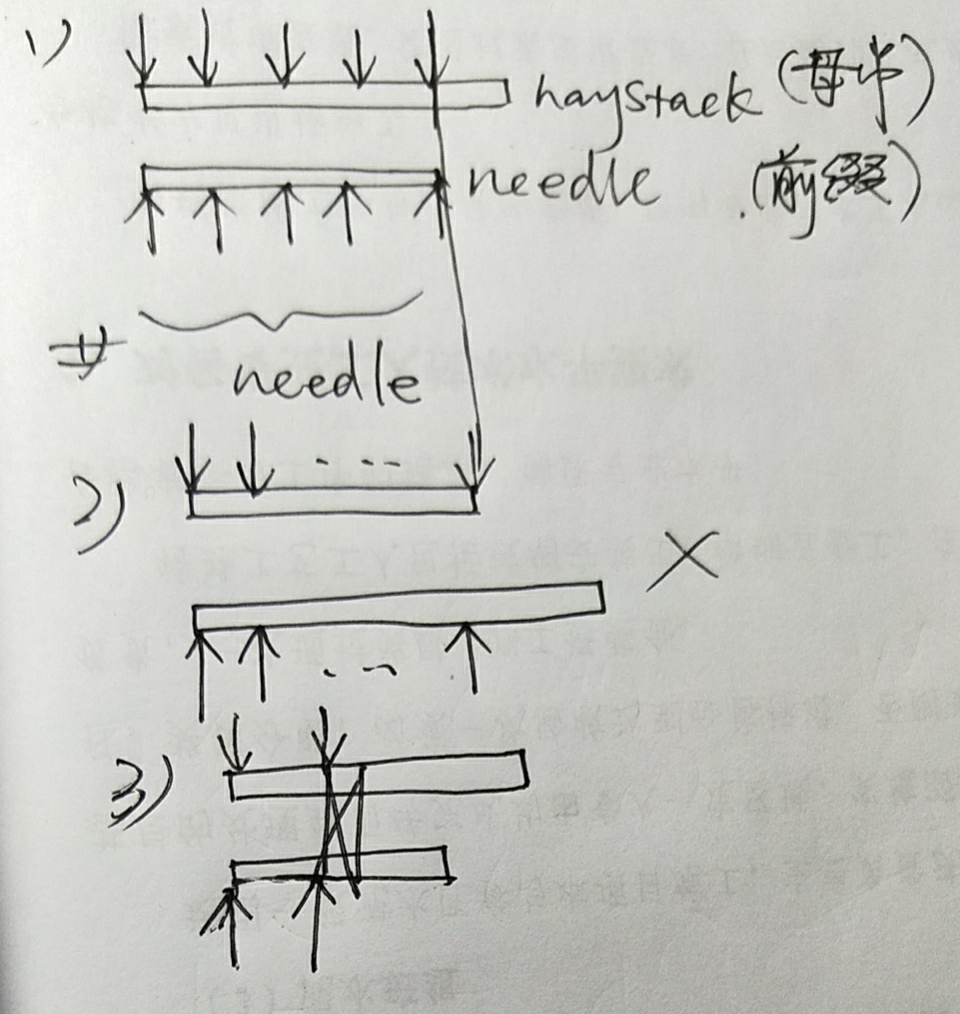 1) haystack (母串)
needle (前缀)
needle
2)
3)